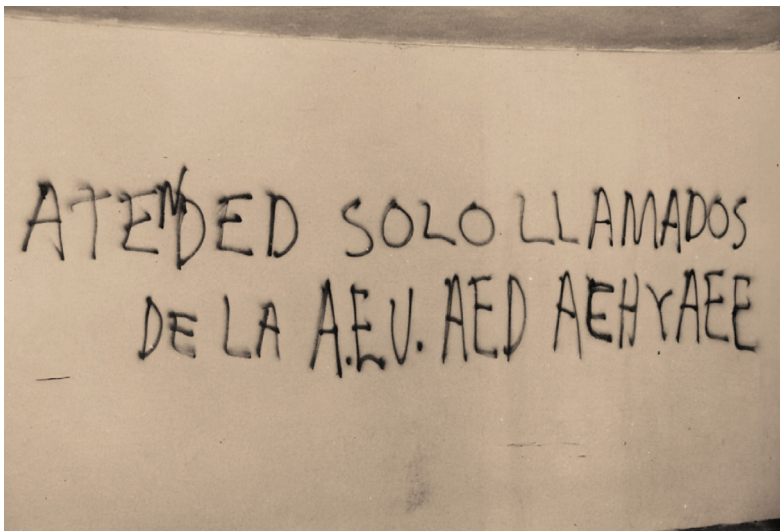 ATENDED SOLO LLAMADOS
DE LA A.E.U. AED AEH Y AEE